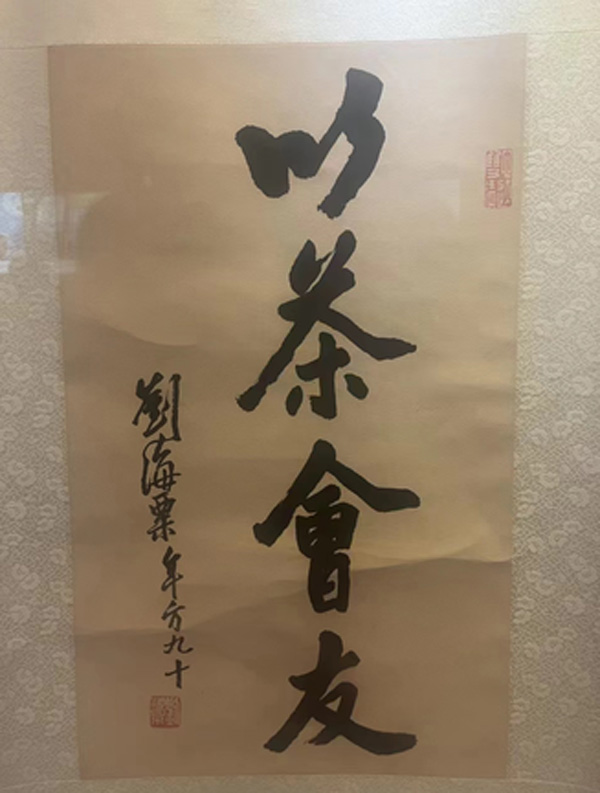 以茶會友
劉海粟年方九十